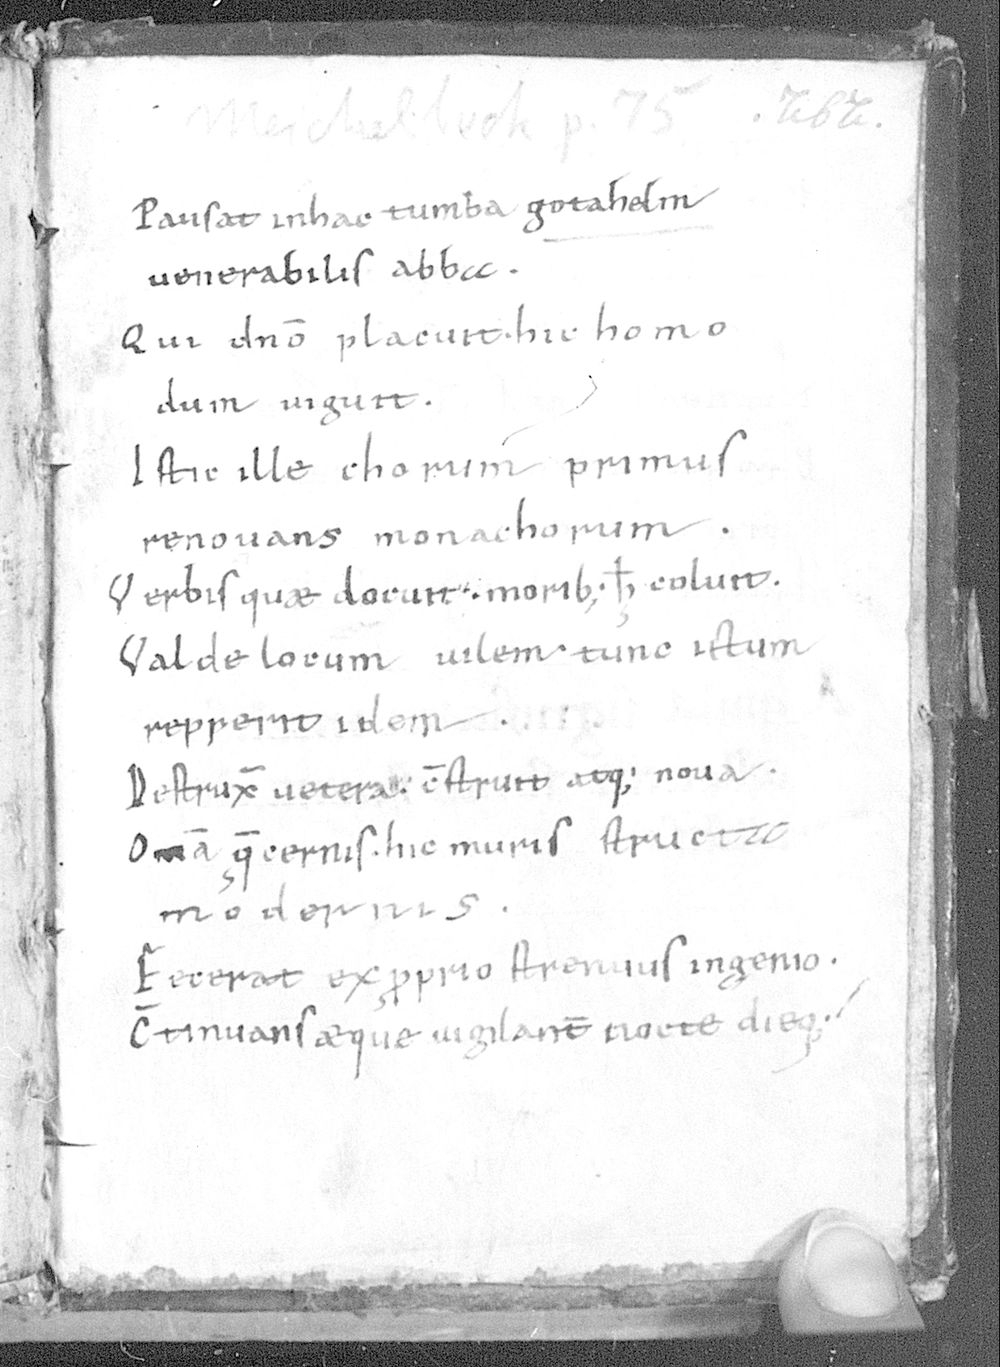 Meichelbeck p. 75
Pausat inhac tumba gotahelm
uenerabilis abba .
Qui dnō placuit · hic homo
dum uiguit .
Istic ille chorum primus
renouans monachorum .
Verbis quae docuit · morib; · hęc coluit .
Valde locum uilem · tunc istum
repperit idem .
Destrux̄ uetera · c̄struit atq; noua .
Om̄a q̄ cernis · hic muris structa
modernis .
Fecerat ex proprio strenuus ingenio .
C̄tinuans aeque uigilant̄ nocte dieq; .